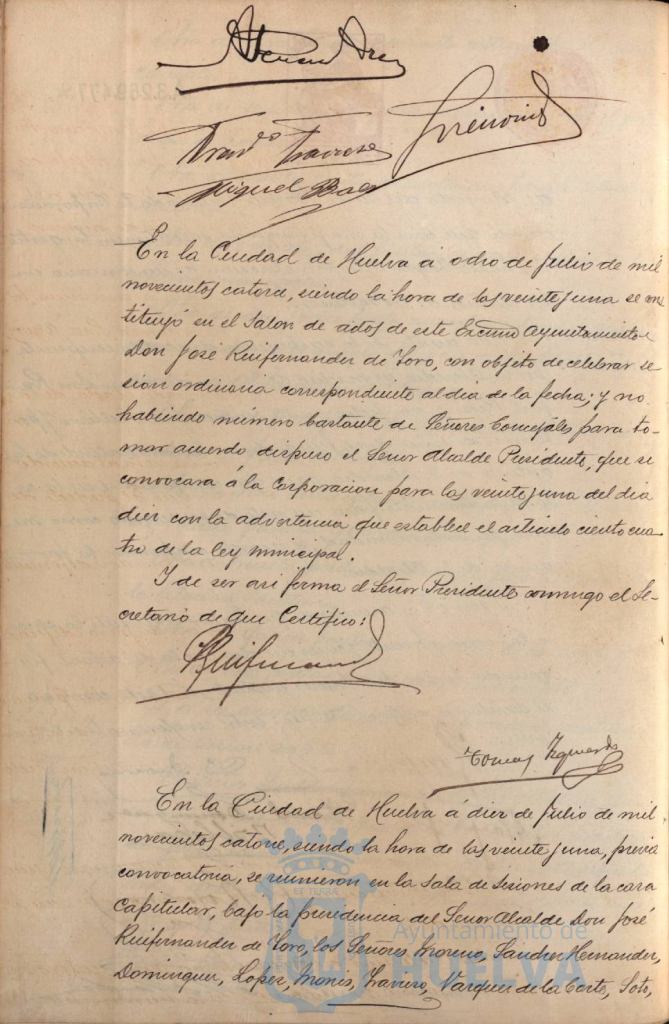 Miguel Baez
En la Ciudad de Huelva á ocho de Julio de mil
novecientos catorce, siendo la hora de las veinte y una se cons
tituyó en el Salon de actos de este Excmo Ayuntamiento
Don José Ruifernandez de Toro, con objeto de celebrar se
sion ordinaria correspondiente al dia de la fecha; y no
habiendo número bastante de Señores Concejales para to-
mar acuerdo dispuso el Señor Alcalde Presidente, que se
convocara á la Corporacion para las veinte y una del dia
diez con la advertencia que establece el articulo ciento cua
tro de la ley municipal.
Y de ser asi firma el Señor Presidente conmigo el Se-
cretario de que Certifico:
Ruifernandez
Tomas Izquierdo
En la Ciudad de Huelva á diez de Julio de mil
novecientos catorce, siendo la hora de las veinte y una, previa
convocatoria, se reunieron en la sala de sesiones de la casa
Capitular, bajo la presidencia del Señor Alcalde Don José
Ruifernandez de Toro, los Señores Moreno, Sanchez Hernandez,
Dominguez, Lopez, Monis, Travieso, Vazquez de la Corte, Soto,
Ayuntamiento de
HUELVA